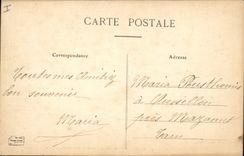 CARTE POSTALE
Correspondance
Adresse
Toutes mes Amitiés
bon souvenir
Maria
Maria
à Aussillon
près Mazamet
Tarn